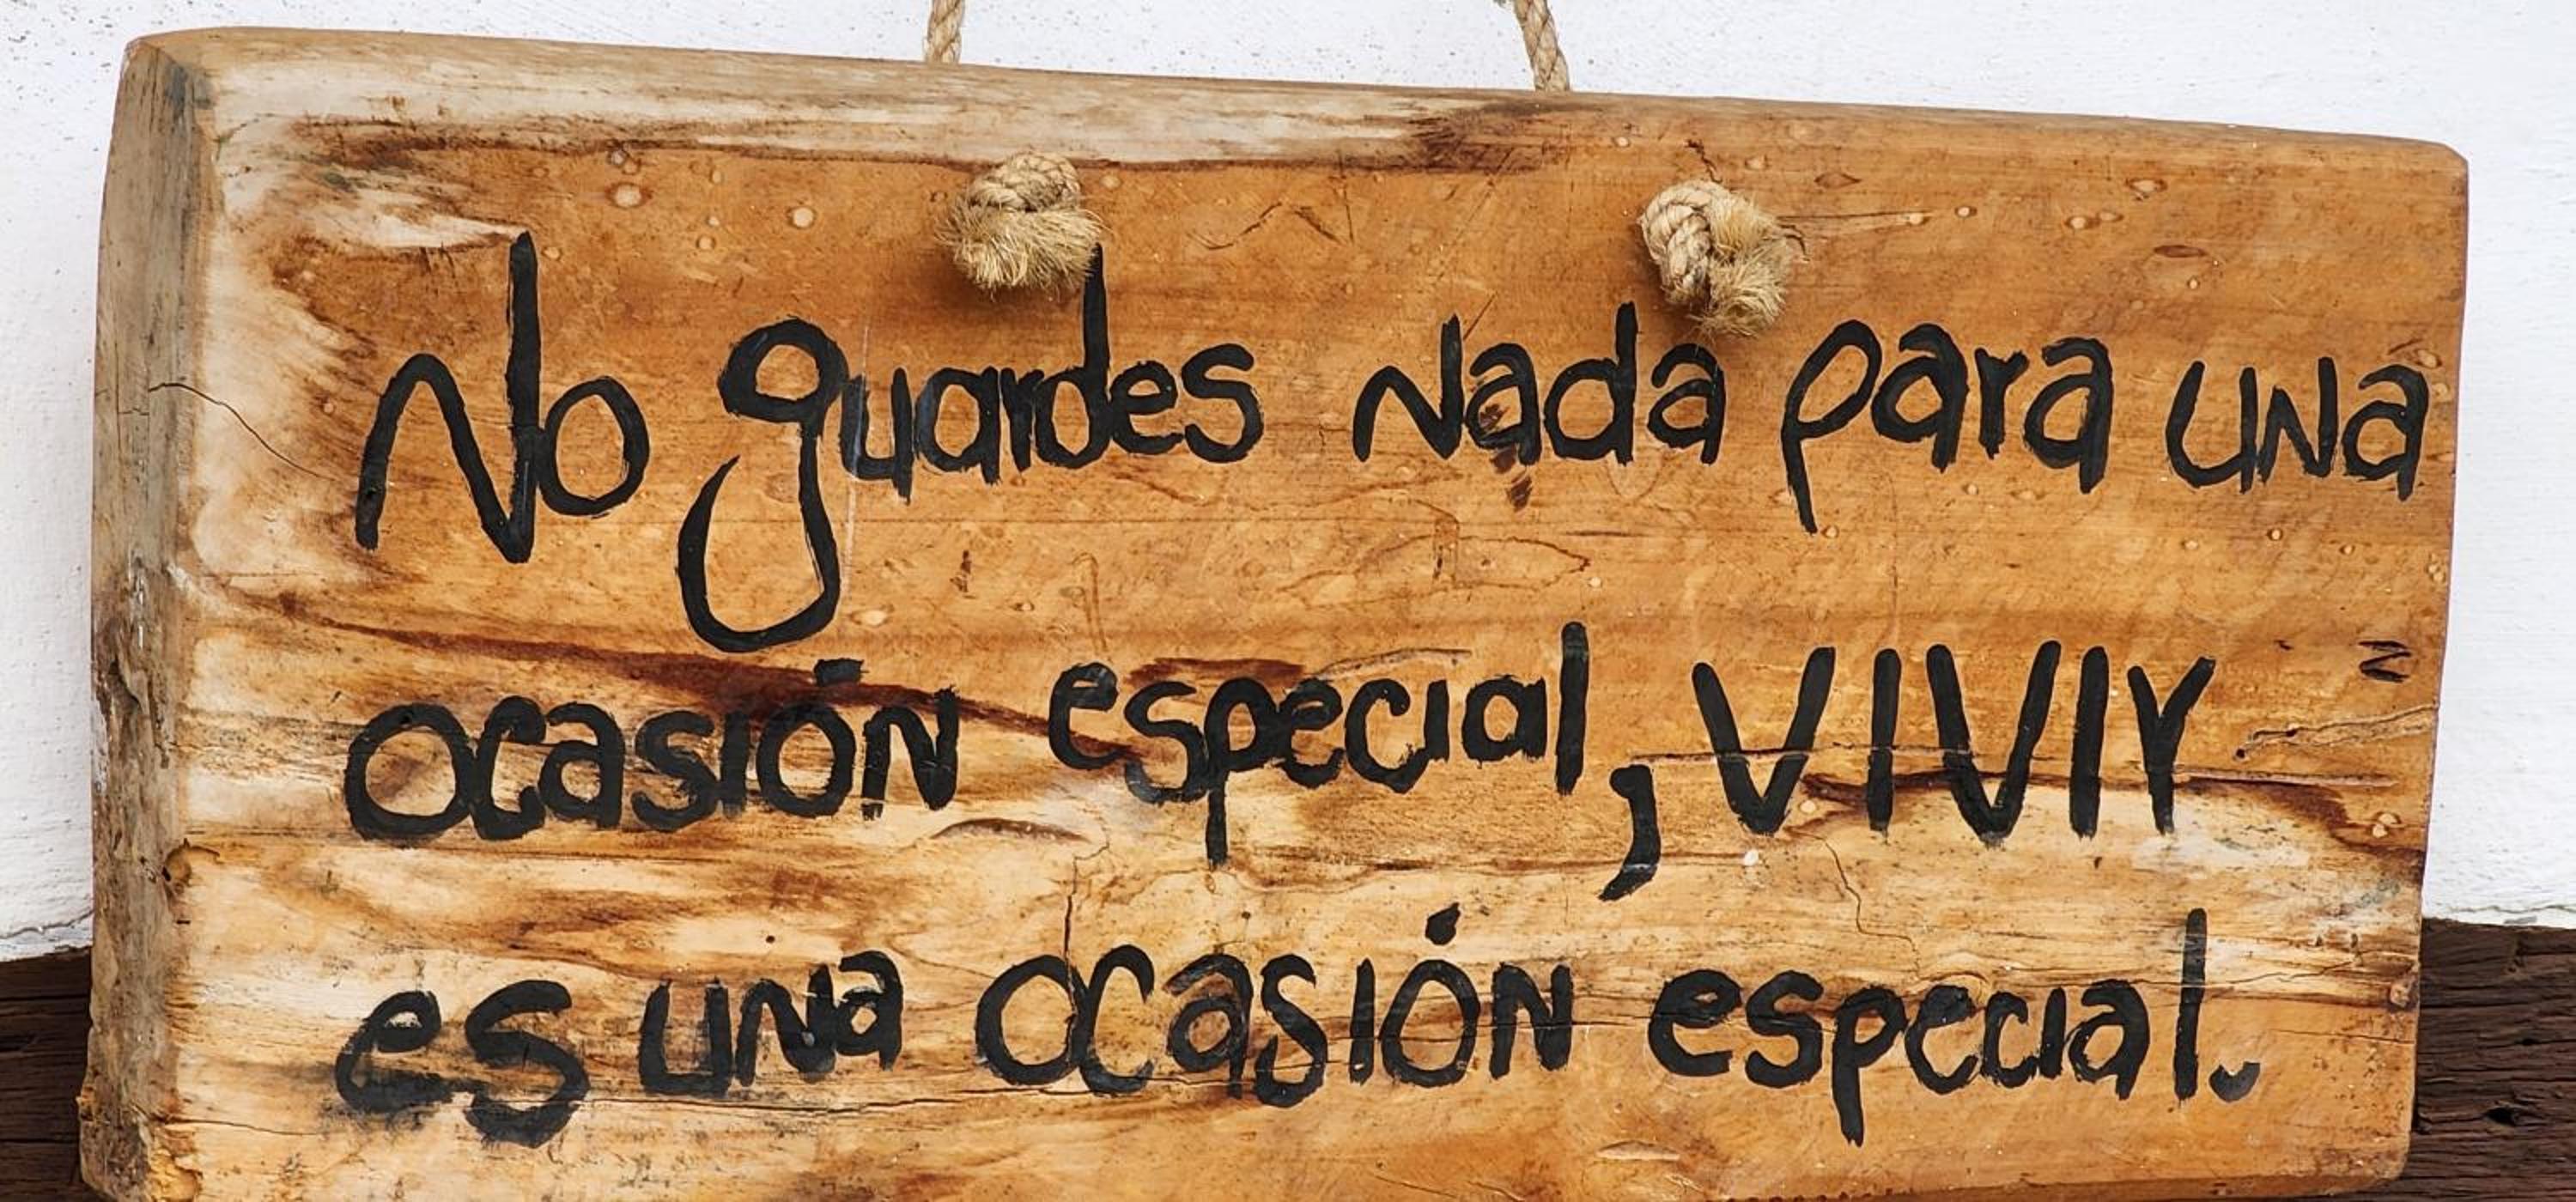 No guardes nada para una
ocasión especial, VIVIr
es una ocasión especial.